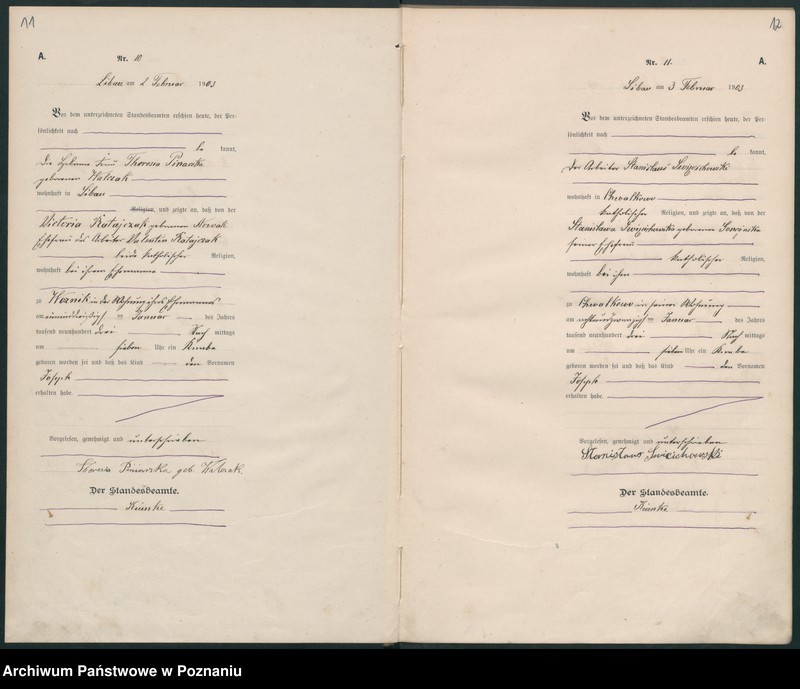 11
A.
Nr. 10
Libau am 2 Februar 1903
Vor dem unterzeichneten Standesbeamten erschien heute, der Per-
sönlichkeit nach
be kannt,
die Hebamme Frau Theresia
geborenen Walczak
wohnhaft in Libau
Religion, und zeigte an, daß von der
Victoria Ratajczak geborenen Nowak
Ehefrau des Arbeiter Valentin Ratajczak
beide katholischer Religion,
wohnhaft bei ihrem Ehemanne
zu Woznik in der Wohnung ihres Ehemannes
am einunddreißigsten Januar des Jahres
tausend neunhundert drei Nach mittags
um sieben Uhr ein Knabe
geboren worden sei und daß das Kind den Vornamen
Joseph
erhalten habe.
Vorgelesen, genehmigt und unterschrieben
geb. Walczak
Der Standesbeamte.
12
Nr. 11.
A.
Libau am 3 Februar 1903
Vor dem unterzeichneten Standesbeamten erschien heute, der Per-
sönlichkeit nach
be kannt,
Der Arbeiter Stanislaus
wohnhaft in Chwalkowo
katholischer Religion, und zeigte an, daß von der
Stanislawa geborenen
seiner Ehefrau
katholischer Religion,
wohnhaft bei ihm
zu Chwalkowo in seiner Wohnung
am achtundzwanzigsten Januar des Jahres
tausend neunhundert drei Nach mittags
um sieben Uhr ein Knabe
geboren worden sei und daß das Kind den Vornamen
Joseph
erhalten habe.
Vorgelesen, genehmigt und unterschrieben
Stanislaus
Der Standesbeamte.
Archiwum Państwowe w Poznaniu